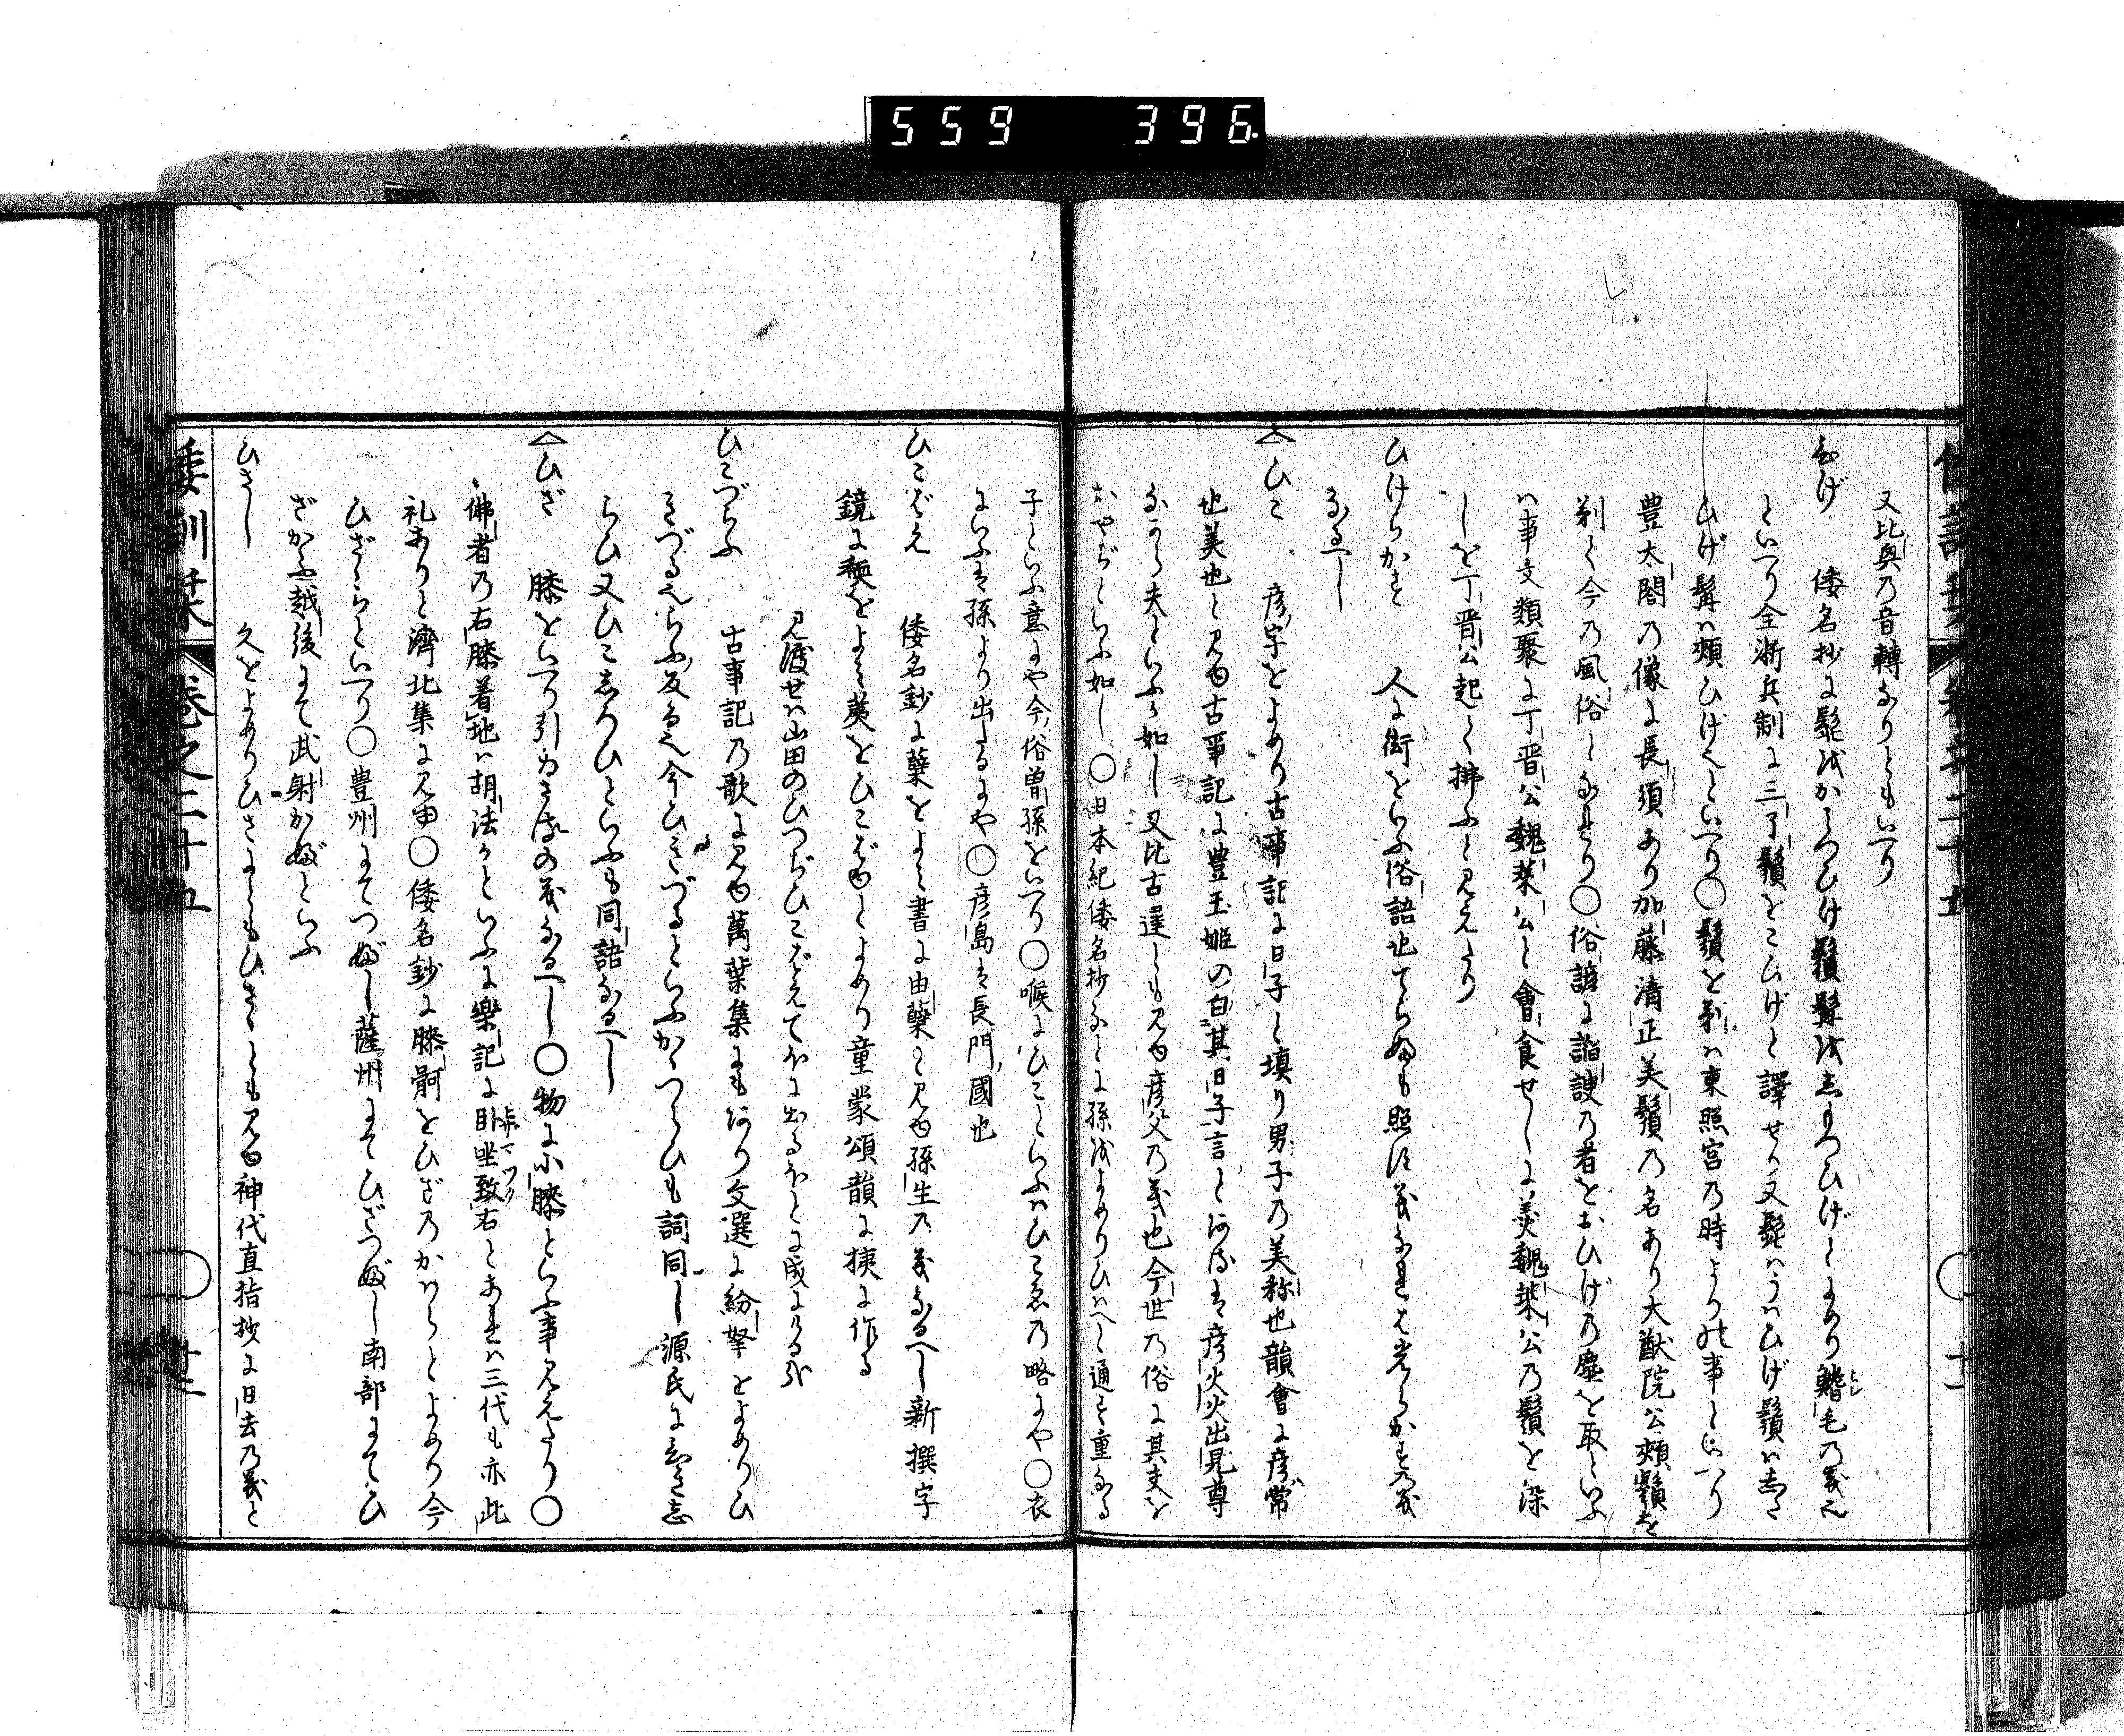 559 396
又比與乃音轉なりともいへり
ひげ 倭名抄に髭をかみつひけ鬚髯をしもつひげとよめり鰭毛の義也
といへり全浙兵制に三了鬚をこひげと譯せり又髭はうはひげ鬚はした
ひげ髯は頬ひげ也といへり〇鬚を剃は東照宮乃時よりの事といへり
豊太閤乃像に長須あり加藤清正美鬚乃名あり大猷院公頬鬚を
剃て今乃風俗となれり〇俗諺に諂諛乃者をおひげ乃塵を取といふ
は事文類聚に丁晋公魏莱公と會食せしに羮魏莱公乃鬚を染
しを丁晋公起て拂ふと見えたり
ひけらかす 人に衒をいふ俗語也てらふも照す義なれは光らかす乃義
なるへし
ひこ 彦字をよめり古事記に日子と填り男子乃美称也韻會に彦常
也美也と見ゆ古事記に豊玉姫の白其日子言とあるは彦火火出見尊
なから夫といふか如し又比古遅とも見ゆ彦父乃義也今世乃俗に其夫を
おやぢといふ如し〇日本紀倭名抄なとに孫をよめりひはへと通す重なる
子といふ意にや今俗曽孫をいへり〇喉にひこといふはひこゑ乃略にや〇衣
にいふは孫より出るにや〇彦島は長門國也
ひこばえ 倭名鈔に蘖をよみ書に由蘖と見ゆ孫生乃義なるへし新撰字
鏡に稉をよみ荑をひこばゆとよめり童蒙頌韻に荑に作る
見渡せは山田のひつぢひこばえてほに出るほとに成にける哉
ひこづらふ 古事記乃歌に見ゆ萬葉集にもあり文選に紛拏をよめりひ
きづるをらふ反る也今ひきづるといふかつらひも詞同し源氏にひきし
らひ又ひこしろひといふも同語なるへし
ひざ 膝をいへり引ゐさるの義なるへし〇物に小膝といふ事見えたり〇
佛者乃右膝着地は胡法かといふに樂記に卧坐致右とあれは三代も亦此
礼ありと濟北集に見ゆ〇倭名鈔に膝骬をひざ乃かはらとよめり今
ひざらといへり〇豊州にてつぶし薩州にてひざつぶし南部にてひ
ざかふ越後にて武射かぶといふ
ひさし 久をよめりひさにともひさゝとも見ゆ神代直指抄に日去乃義と
倭訓栞 巻之二十五 〇 廿二